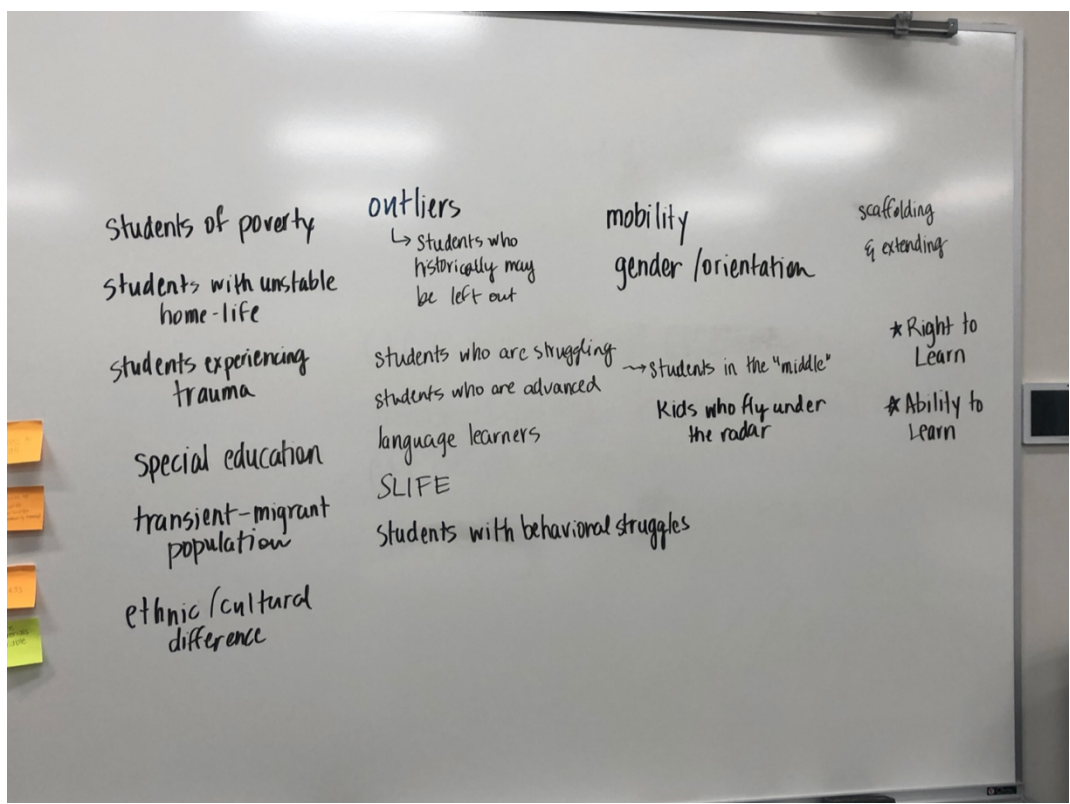 students of poverty
students with unstable
home-life
students experiencing
trauma
special education
transient-migrant
population
ethnic/cultural
difference
outliers
↳ students who
historically may
be left out
students who are struggling
students who are advanced
language learners
SLIFE
students with behavioral struggles
mobility
gender/orientation
→ students in the "middle"
Kids who fly under
the radar
scaffolding
& extending
★ Right to
Learn
★ Ability to
Learn